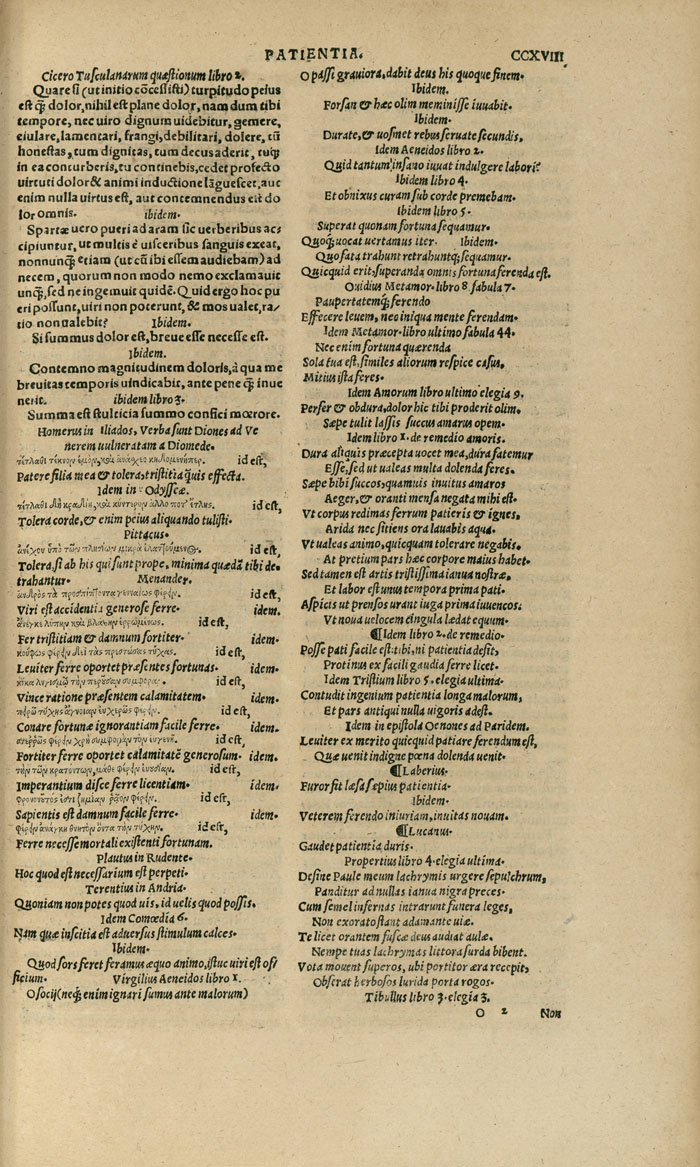 PATIENTIA. CCXVIII
Cicero Tusculanarum quæstionum libro 2.
Quare si (ut initio cōcessisti) turpitudo peius
est q̃ dolor, nihil est plane dolor, nam dum tibi
tempore, nec uiro dignum uidebitur, gemere,
eiulare, lamentari, frangi, debilitari, dolere, tū
honestas, tum dignitas, tum decus aderit, tuiq;
in ea concurberis, tu continebis, cedet profecto
uirtuti dolor & animi inductione lāguescet, aut
enim nulla uirtus est, aut contemnendus est do
lor omnis. Ibidem.
Spartæ uero pueri ad aram sic uerberibus acs
cipiuntur, ut multis è uisceribus sanguis exeat,
nonnunq̃ etiam (ut cū ibi essem audiebam) ad
necem, quorum non modo nemo exclamauit
unq̃, sed ne ingemuit quidē. Quid ergo hoc pu
eri possunt, uiri non poterunt, & mos ualet, ra/
tio non ualebit? Ibidem.
Si summus dolor est, breue esse necesse est.
Ibidem.
Contemno magnitudinem doloris, à qua me
breuitas temporis uindicabit, ante pene q̃ inue
nerit. ibidem libro 3.
Summa est stulticia summo confici mœrore.
Homerus in Iliados, Verba sunt Diones ad Ve
nerem uulneratam a Diomede.
id est,
Patere filia mea & tolera, tristitia quis effecta.
Idem in Odysseæ.
id est,
Tolera corde, & enim peius aliquando tulisti.
Pittacus.
id est,
Tolera, si ab his qui sunt prope, minima quædā tibi de.
trahantur. Menander.
id est,
Viri est accidentia generose ferre. idem.
id est,
Fer tristitiam & damnum fortiter. idem.
id est,
Leuiter ferre oportet præsentes fortunas. idem.
id est,
Vince ratione præsentem calamitatem. idem.
id est,
Conare fortunæ ignorantiam facile ferre. idem.
id est,
Fortiter ferre oportet calamitatē generosum. idem.
id est,
Imperantium disce ferre licentiam. idem.
id est,
Sapientis est damnum facile ferre. idem.
id est,
Ferre necesse mortali existenti fortunam.
Plautus in Rudente.
Hoc quod est necessarium est perpeti.
Terentius in Andria.
Quoniam non potes quod uis, id uelis quod possis.
Idem Comœdia 6.
Nam quæ inscitia est aduersus stimulum calces.
Ibidem.
Quod sors feret feramus æquo animo, istuc uiri est of/
ficium. Virgilius Aeneidos libro 1.
O socij (neq; enim ignari sumus ante malorum)
O passi grauiora, dabit deus his quoque finem.
Ibidem.
Forsan & hæc olim meminisse iuuabit.
Ibidem.
Durate, & uosmet rebus seruate secundis,
Idem Aeneidos libro 2.
Quid tantum insano iuuat indulgere labori?
Ibidem libro 4.
Et obnixus curam sub corde premebam.
Ibidem libro 5.
Superat quonam fortuna sequamur.
Quoq; uocat uertamus iter. Ibidem.
Quo fata trahunt retrahuntq; sequamur.
Quicquid erit, superanda omnis fortuna ferenda est.
Ouidius Metamor. libro 8 fabula 7.
Paupertatemq; ferendo
Effecere leuem, nec iniqua mente ferendam.
Idem Metamor. libro ultimo fabula 44.
Nec enim fortuna quærenda
Sola tua est, similes aliorum respice casus,
Mitius ista feres.
Idem Amorum libro ultimo elegia 9.
Perfer & obdura, dolor hic tibi proderit olim,
Sæpe tulit lassis succus amarus opem.
Idem libro 1. de remedio amoris.
Dura aliquis præcepta uocet mea, dura fatemur
Esse, sed ut ualeas multa dolenda feres.
Sæpe bibi succos, quamuis inuitus amaros
Aeger, & oranti mensa negata mihi est.
Vt corpus redimas ferrum patieris & ignes,
Arida nec sitiens ora lauabis aqua.
Vt ualeas animo, quicquam tolerare negabis,
At pretium pars hæc corpore maius habet.
Sed tamen est artis tristissima ianua nostræ,
Et labor est unus tempora prima pati.
Aspicis ut prensos urant iuga prima iuuencos:
Vt noua uelocem cingula lædat equum.
¶ Idem libro 2. de remedio.
Posse pati facile est: tibi, ni patientia desit,
Protinus ex facili gaudia ferre licet.
Idem Tristium libro 5. elegia ultima.
Contudit ingenium patientia longa malorum,
Et pars antiqui nulla uigoris adest.
Idem in epistola Oenones ad Paridem.
Leuiter ex merito quicquid patiare ferendum est,
Quæ uenit indigne pœna dolenda uenit.
¶ Laberius.
Furor fit læsa sæpius patientia.
Ibidem.
Veterem ferendo iniuriam, inuitas nouam.
¶ Lucanus.
Gaudet patientia duris.
Propertius libro 4. elegia ultima.
Desine Paule meum lachrymis urgere sepulchrum,
Panditur ad nullas ianua nigra preces.
Cum semel infernas intrarunt funera leges,
Non exorato stant adamante uiæ.
Te licet orantem fuscæ deus audiat aulæ.
Nempe tuas lachrymas littora surda bibent.
Vota mouent superos, ubi portitor æra recepit,
Obserat herbosos lurida porta rogos.
Tibullus libro 3. elegia 3.
O 2 Non